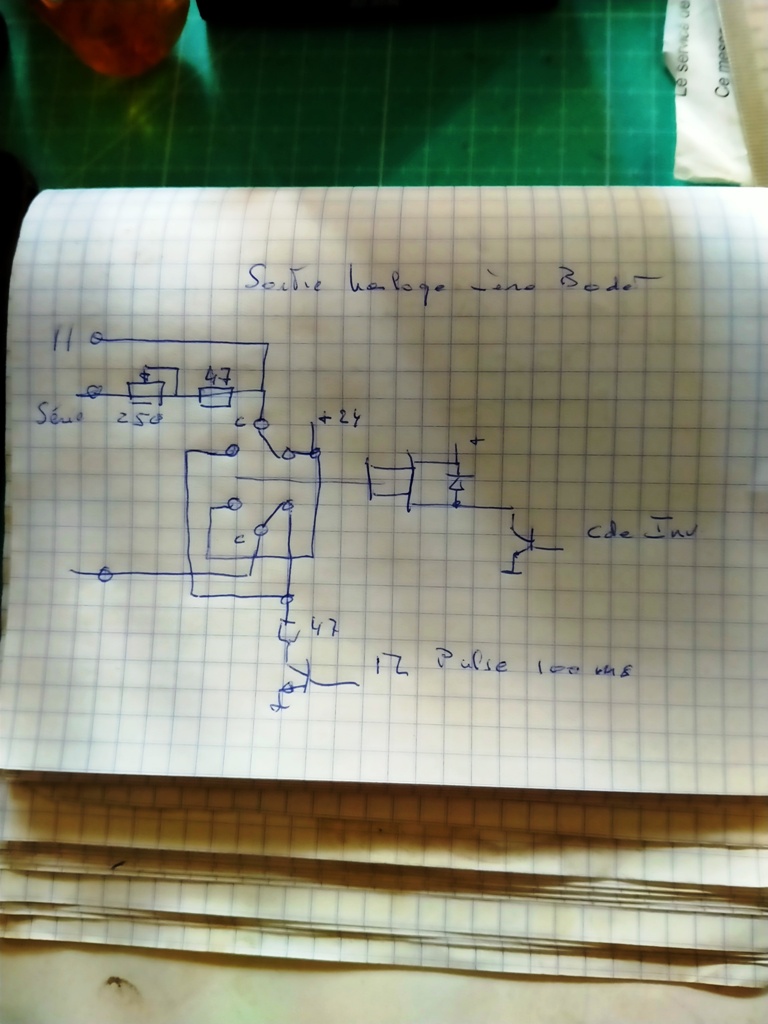 Le service de
Ce messa
Sortie horloge
Bodet
//
47
Série
250
c
+24
+
c
Cde Inv
47
Pulse 100 ms